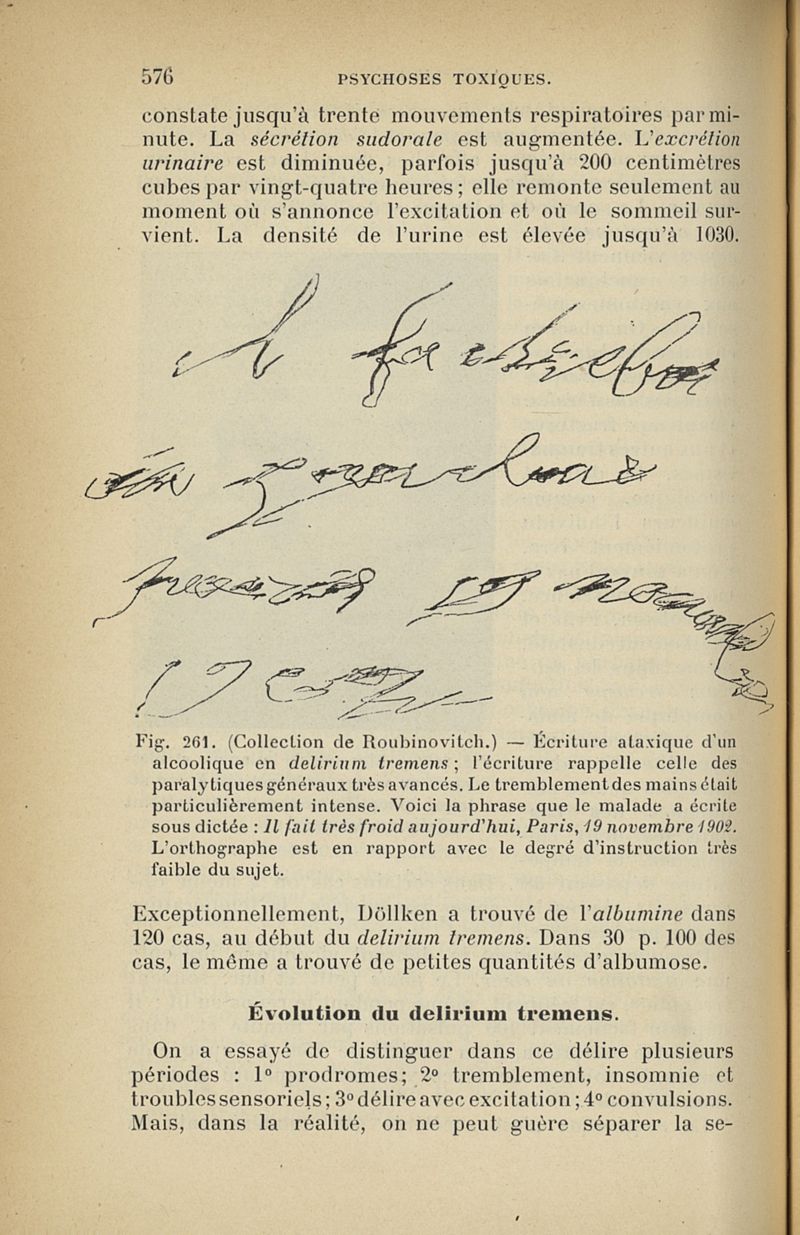 576
PSYCHOSES TOXIQUES.
constate jusqu'à trente mouvements respiratoires par mi-
nute. La sécrétion sudorale est augmentée. L'excrétion
urinaire est diminuée, parfois jusqu'à 200 centimètres
cubes par vingt-quatre heures ; elle remonte seulement au
moment où s'annonce l'excitation et où le sommeil sur-
vient. La densité de l'urine est élevée jusqu'à 1030.
Fig. 261. (Collection de Roubinovitch.) — Écriture ataxique d'un
alcoolique en delirium tremens ; l'écriture rappelle celle des
paralytiques généraux très avancés. Le tremblement des mains était
particulièrement intense. Voici la phrase que le malade a écrite
sous dictée : Il fait très froid aujourd'hui, Paris, 19 novembre 1902.
L'orthographe est en rapport avec le degré d'instruction très
faible du sujet.
Exceptionnellement, Döllken a trouvé de l'albumine dans
120 cas, au début du delirium tremens. Dans 30 p. 100 des
cas, le même a trouvé de petites quantités d'albumose.
Évolution du delirium tremens.
On a essayé de distinguer dans ce délire plusieurs
périodes : 1° prodromes ; 2° tremblement, insomnie et
troubles sensoriels ; 3° délire avec excitation ; 4° convulsions.
Mais, dans la réalité, on ne peut guère séparer la se-